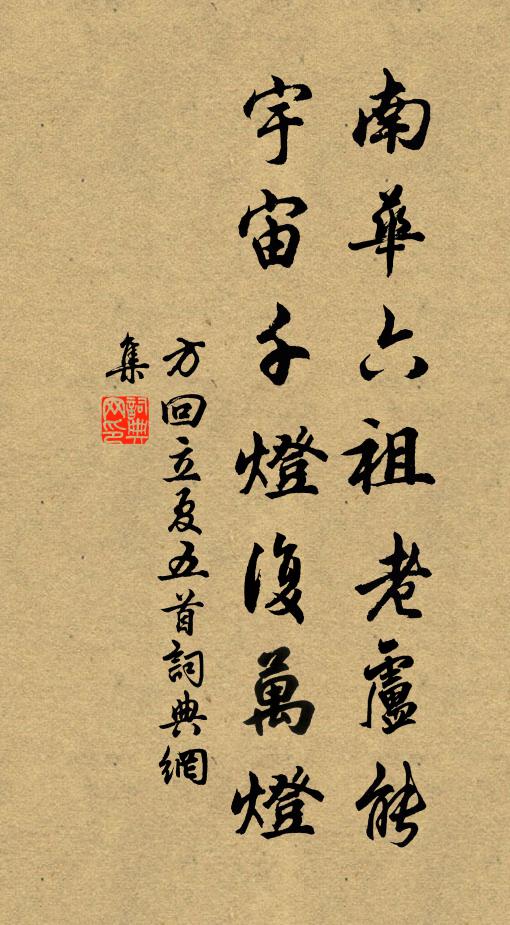 南華六祖老盧能
宇宙千燈復萬燈
方回立夏五首詞典網
集
詞典網印